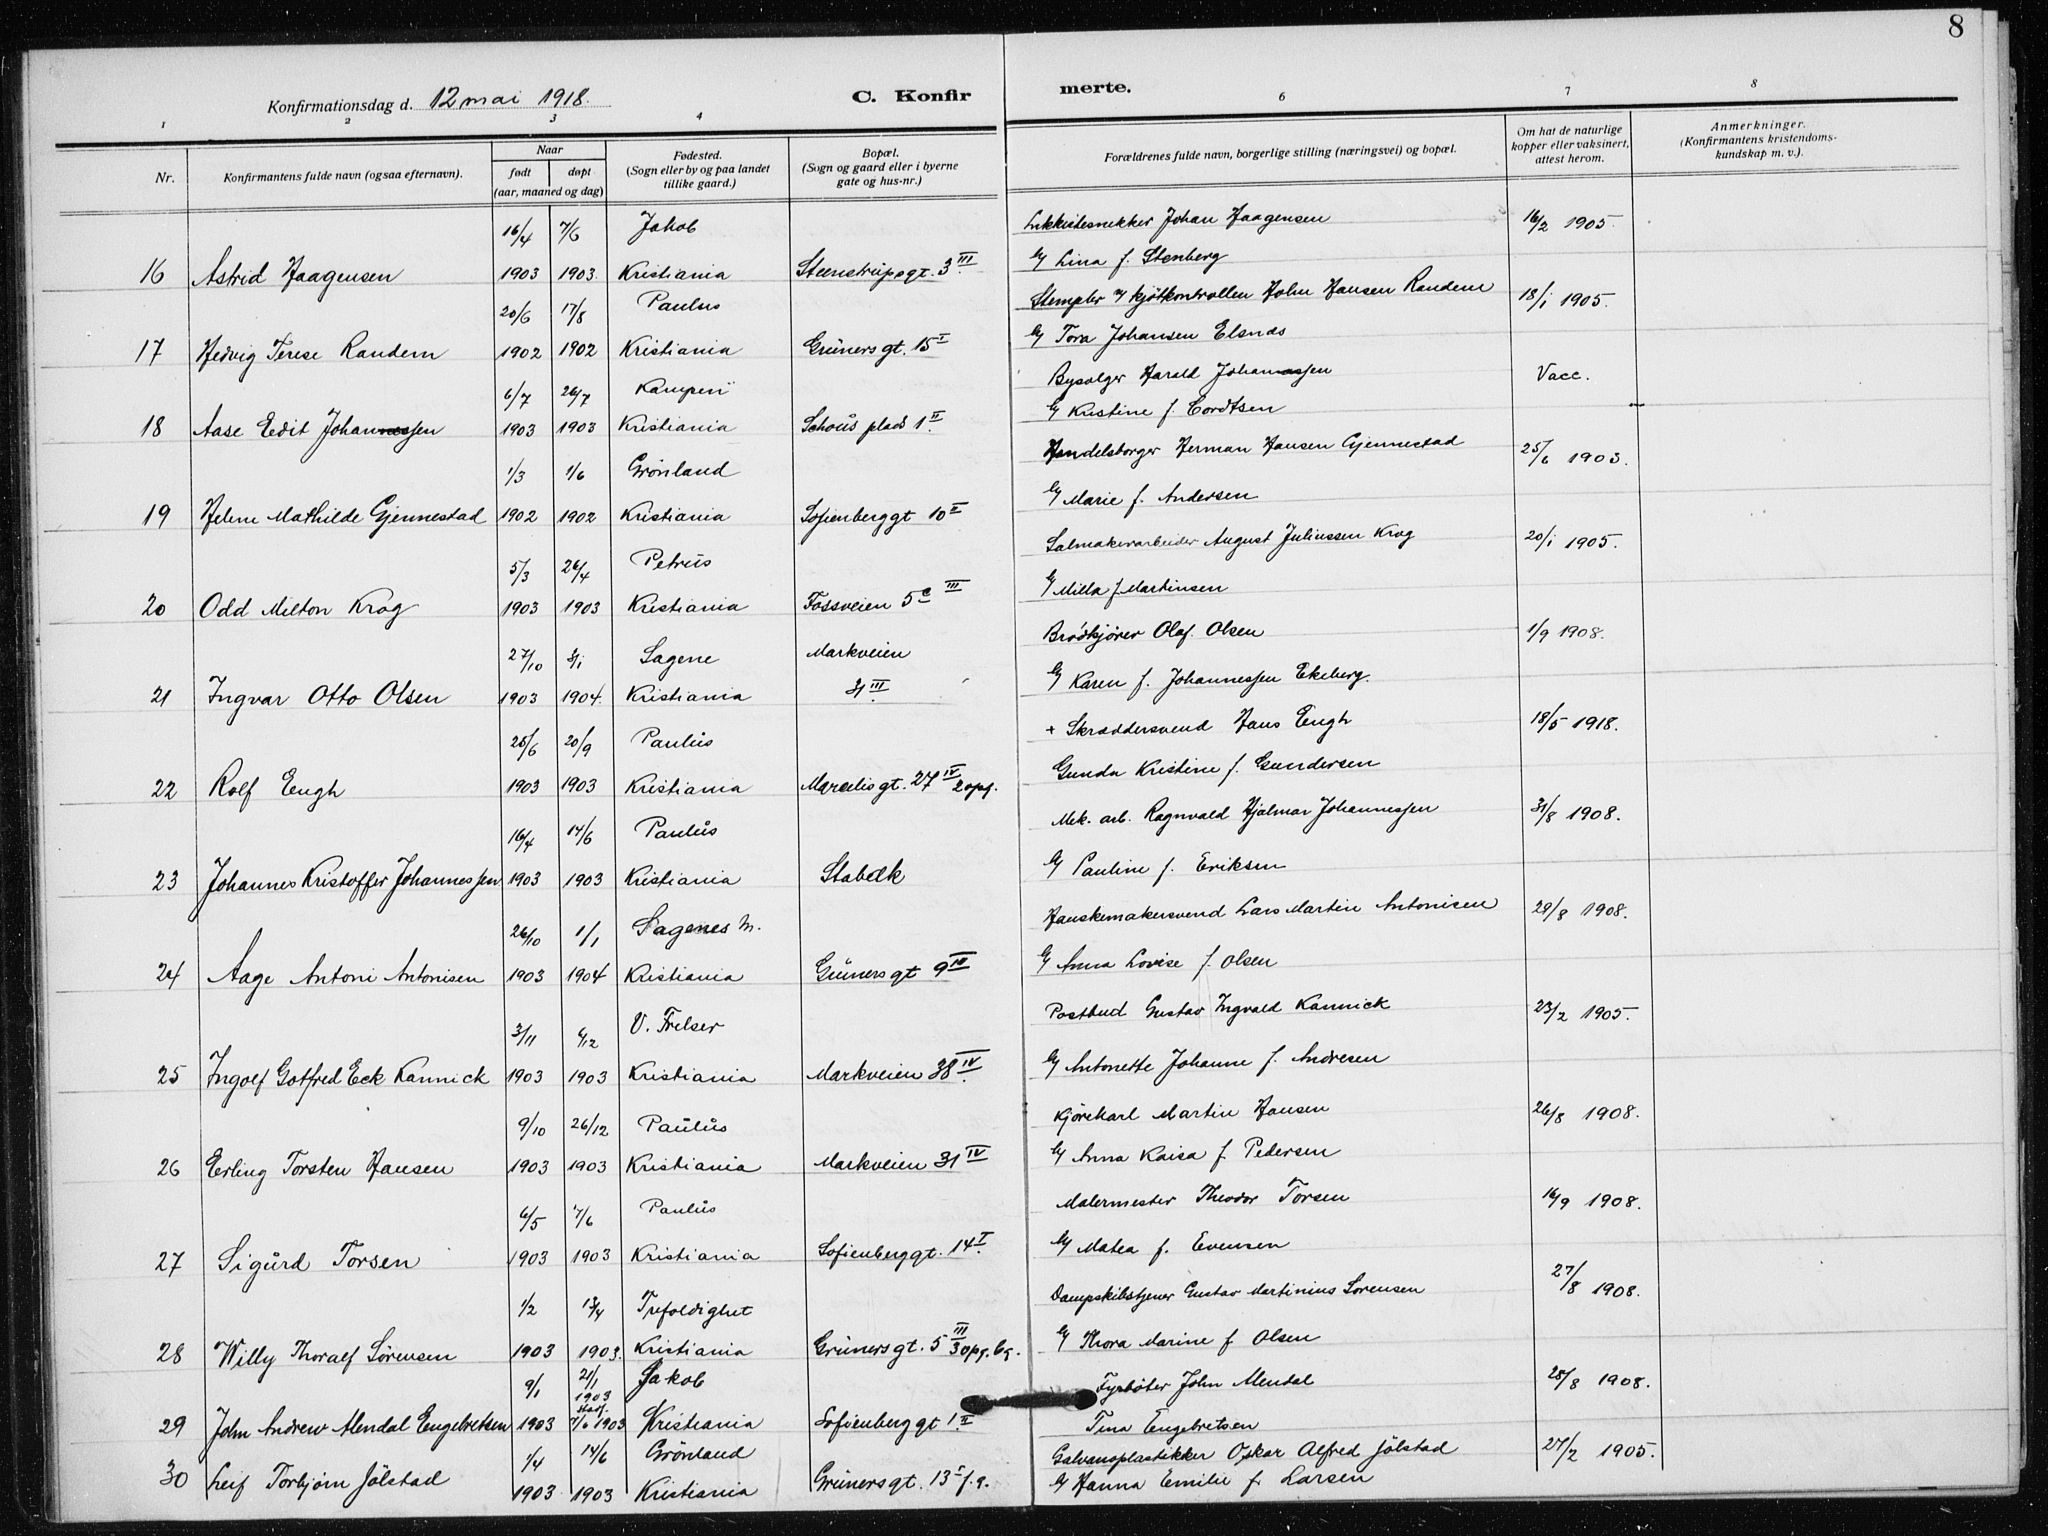 8
Konfirmationsdag d. 12 mai 1918. C. Konfirmerte.
1 2 3 4 6 7 8
Nr. Konfirmantens fulde navn (ogsaa efternavn). Naar født døpt (aar, maaned og dag) Fødested. (Sogn eller by og paa landet tillike gaard.) Bopæl. (Sogn og gaard eller i byerne gate og hus-nr.) Forældrenes fulde navn, borgerlige stilling (næringsvei) og bopæl. Om hat de naturlige kopper eller vaksinert, attest herom. Anmerkninger. (Konfirmantens kristendomskundskap m. v.).
16/4 7/6 Jakob Johan Haagensen 16/2 1905.
16 Astrid Haagensen 1903 1903. Kristiania Steenstrupsgt. 3 III G/ Lina f. Stenberg
20/6 17/8 Paulus Stempler v/ kjötkontrollen John Hansen Randem 18/1 1905.
17 Hedvig Terese Randem 1902 1902 Kristiania Grünersgt. 15 I G/ Tora Johansen Elsnæs
6/7 26/7 Kampen Byselger Harald Johansen Vacc.
18 Aase Edit Johansen 1903 1903 Kristiania Schous plads 1 II G/ Kristine f. Cordtsen
1/3 1/6 Grönland Handelsborger Herman Hansen Gjennestad 25/6 1903.
19 Helene Mathilde Gjennestad 1902 1902 Kristiania Sofienberggt 10 II G/ Marie f. Andersen
5/3 26/4 Petrus Salmakerarbeider August Juliussen Krog 20/1 1905.
20 Odd Milton Krog 1903 1903 Kristiania Fossveien 5c III G/ Milla f. Martinsen
27/10 3/1 Sagene Markveien Brödkjörer Olaf Olsen 1/9 1908.
21 Ingvar Otto Olsen 1903 1904. Kristiania 31 III G/ Karen f. Johannessen Ekeberg.
25/6 20/9 Paulus + Skræddersvend Hans Engh 18/5 1918.
22 Rolf Engh 1903 1903 Kristiania Marselisgt. 27 IV 2 opg. Gunda Kristine f. Gundersen
16/4 14/6 Paulus Mek. arb. Ragnvald Hjalmar Johannessen 31/8 1908.
23 Johannes Kristoffer Johannessen 1903 1903 Kristiania Stabæk G/ Pauline f. Eriksen
26/10 1/1 Sagenes m. Hanskemakersvend Lars Martin Antonisen 29/8 1908.
24 Aage Antoni Antonisen 1903 1904 Kristiania Grünersgt 9 IV G/ Anna Lovise f. Olsen
3/11 6/12 V. Frelser Postbud Gustav Ingvald Kannick 23/2 1905.
25 Ingolf Gotfred Eck Kannick 1903 1903 Kristiania Markveien 38 IV G/ Antonette Johanne f. Andresen
9/10 26/12 Paulus Kjörekarl Martin Hansen 26/8 1908.
26 Erling Torsten Hansen 1903 1903 Kristiania Markveien 31 IV G/ Anna Kaisa f. Pedersen
6/5 7/6 Paulus Malermester Theodor Torsen 16/9 1908.
27 Sigurd Torsen 1903 1903 Kristiania Sofienberggt. 14 I G/ Matea f. Evensen
1/2 13/4 Trefoldighet Dampskibstjener Gustav Martinius Sorensen 27/8 1908.
28 Willy Thoralf Sörensen 1903 1903. Kristiania Grünersgt. 5 III 3 opg. b.g. G/ Thora Marine f. Olsen
9/1 21/1 1903 Jakob Fyrböter John Mendal 28/8 1908.
29 John Andrew Mendal Engebretsen 1903 stadf. 7/6 1903 Kristiania Sofienberggt 1 II Tina Engebretsen
1/4 14/6 Grönland Galvanoplastikker Oskar Alfred Jölstad 27/2 1905.
30 Leif Torbjörn Jölstad 1903 1903 Kristiania Grünersgt. 13 I f.g. G/ Hanna Emilie f. Larsen